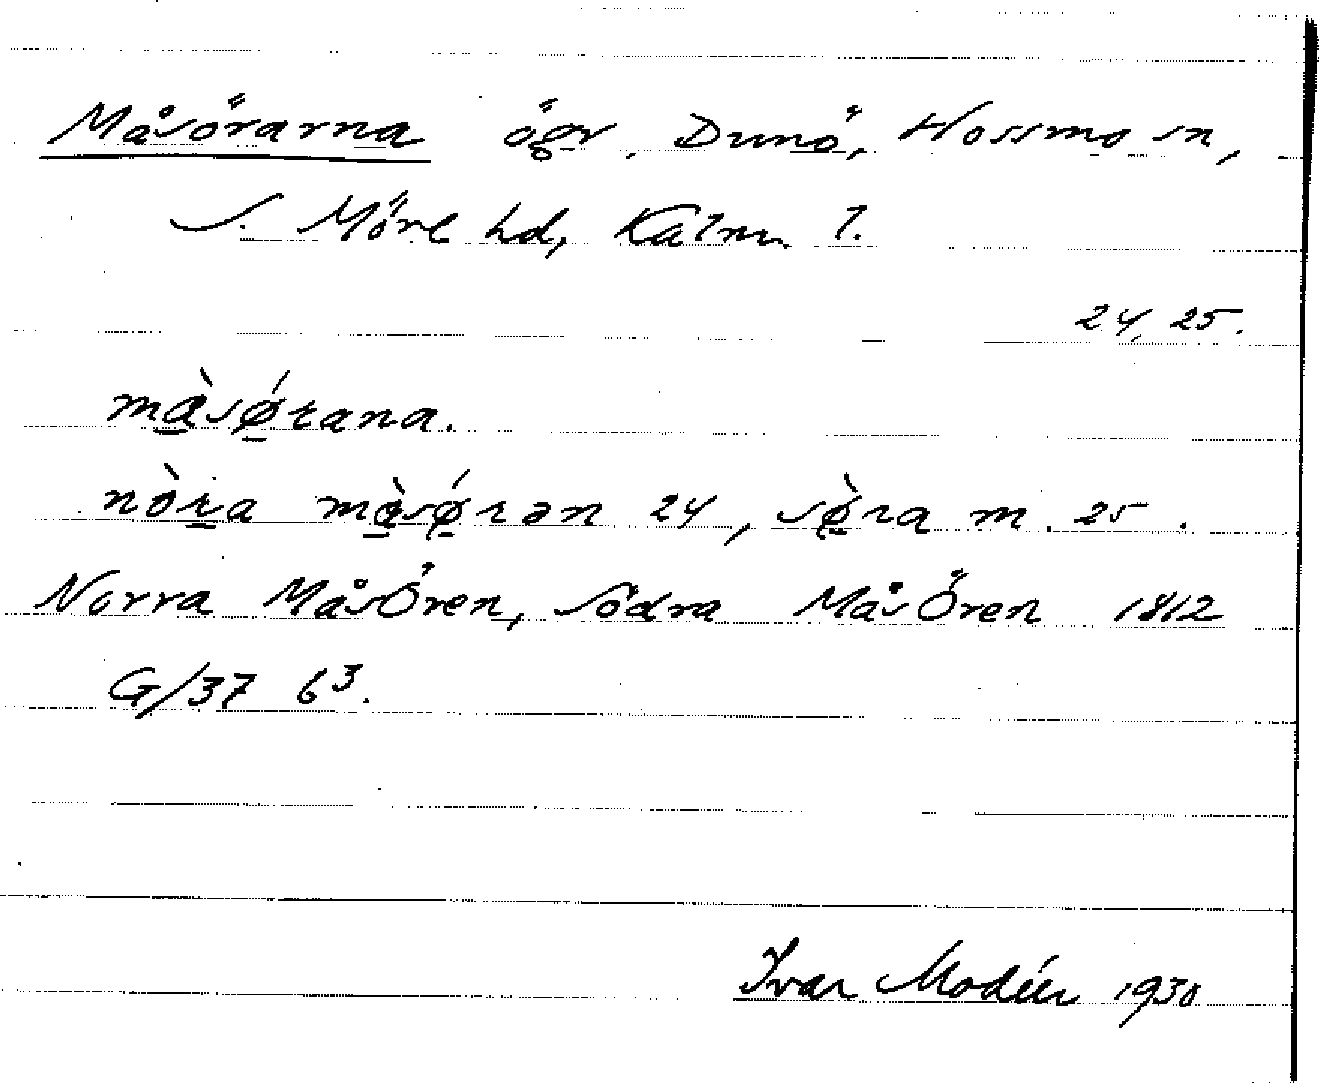 Måsörarna ögr. Dunö, Hossmo sn,
S. Möre hd, Kalm. l.
24, 25.
mà̱sǿ̱rana.
nòṟa mà̱sǿ̱rən 24, sø̱̀ra m. 25.
Norra MåsÖren, Södra MåsÖren 1812
G/37 6³.
Ivar Modéer 1930